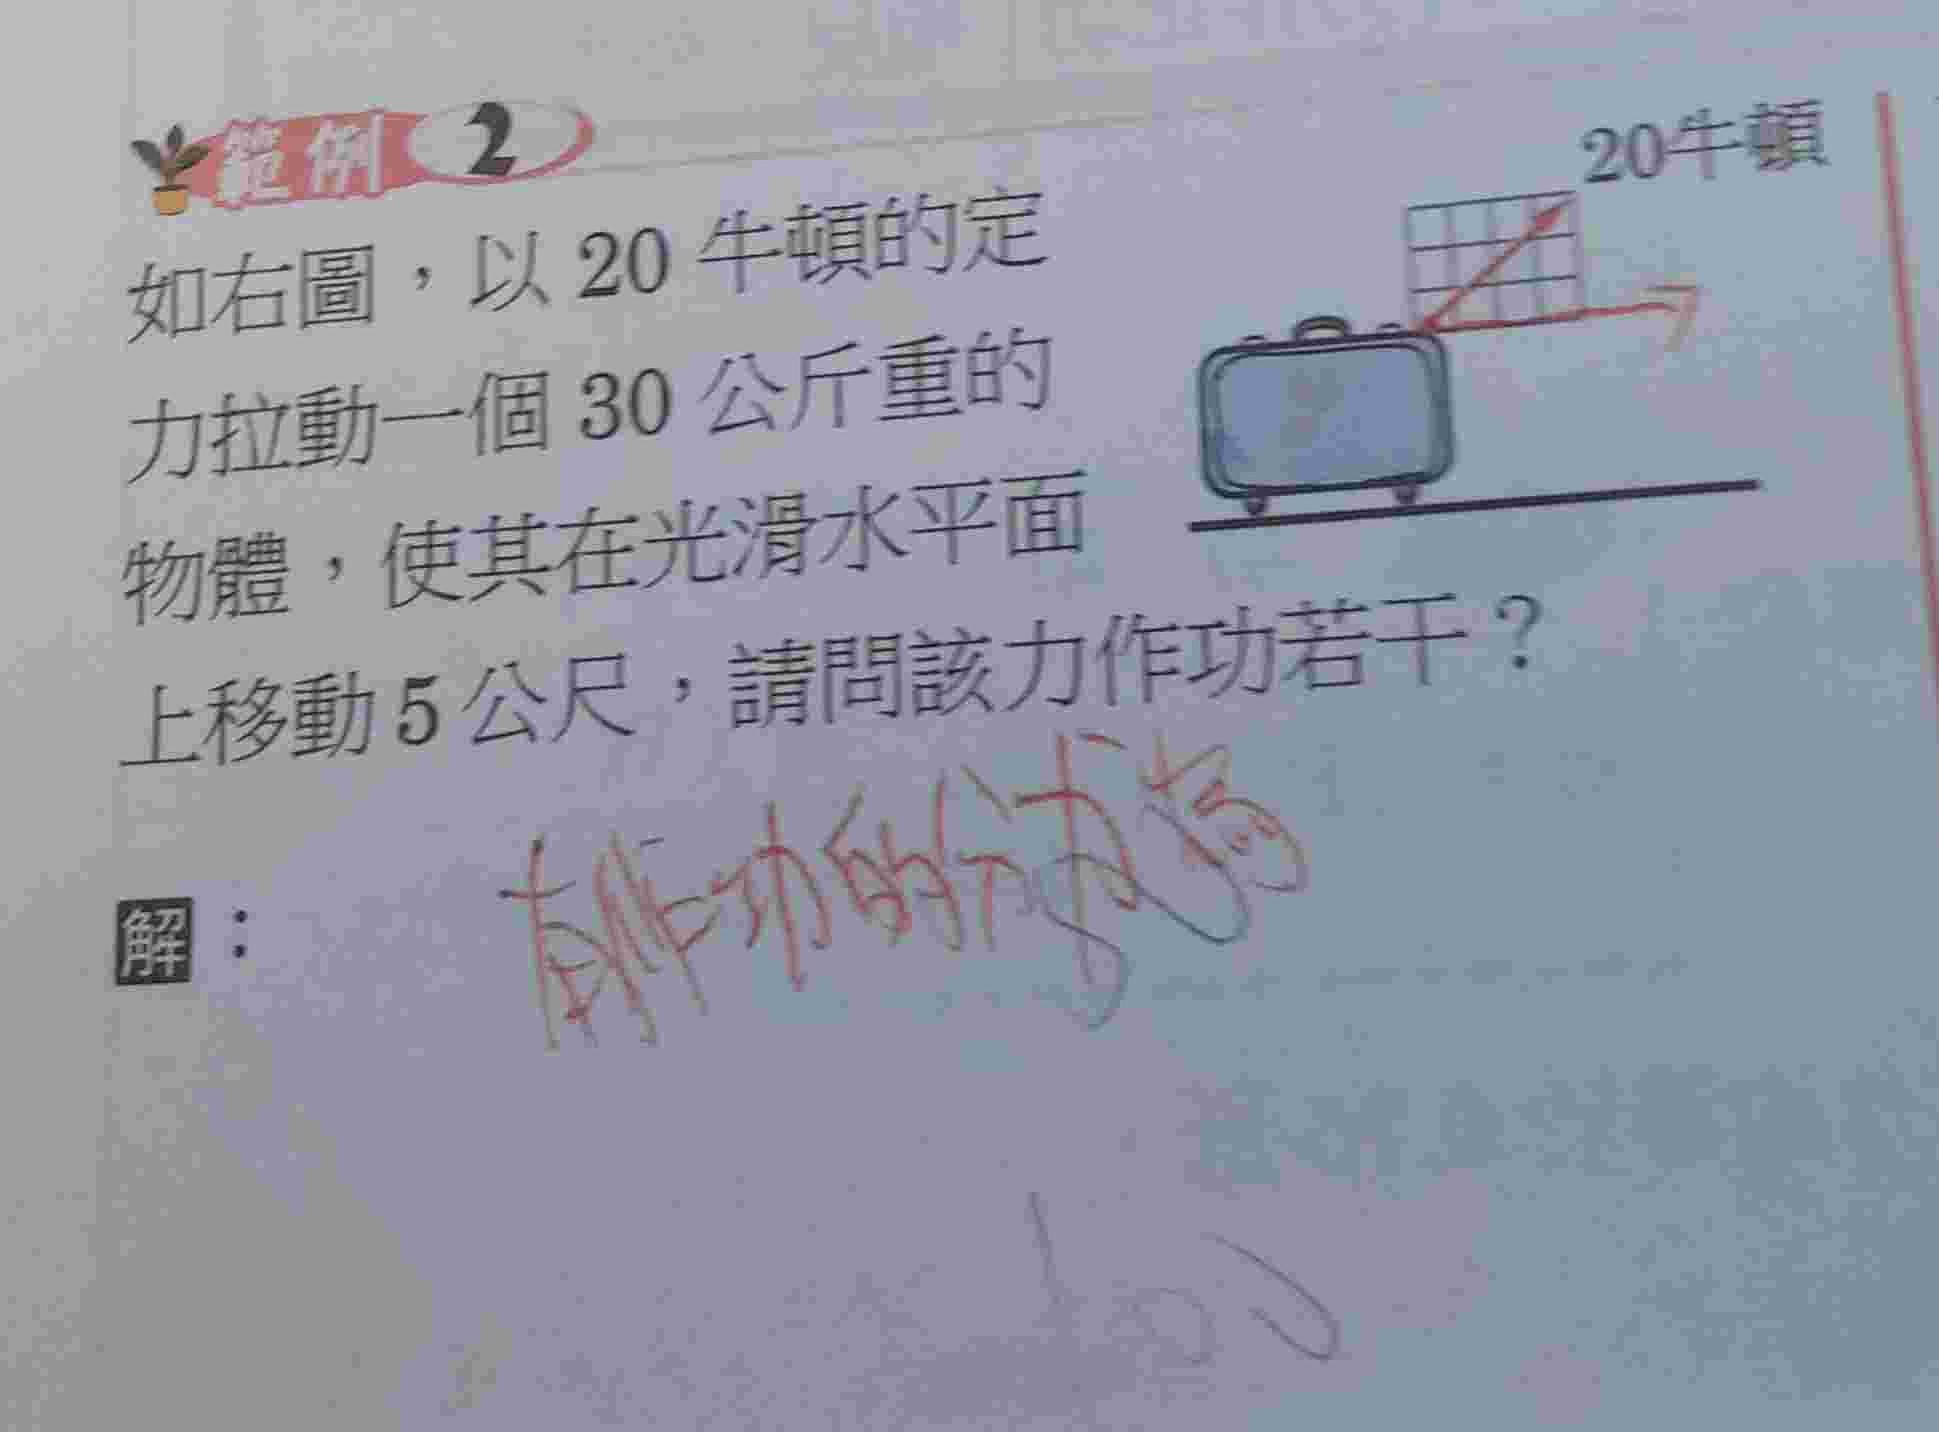 範例 2
20牛頓
如右圖，以 20 牛頓的定
力拉動一個 30 公斤重的
物體，使其在光滑水平面
上移動 5 公尺，請問該力作功若干？
解：